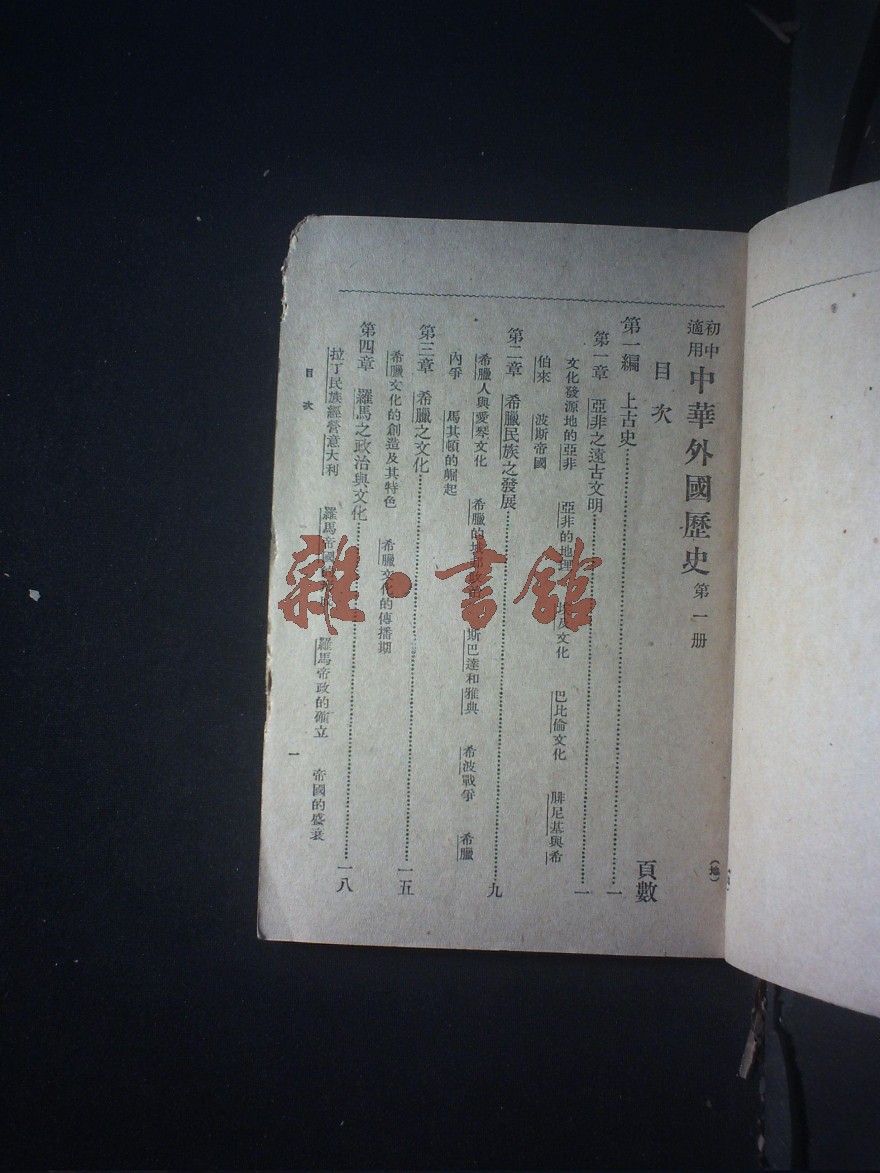 初中適用 中華外國歷史 第一册
目次
頁數
第一編 上古史……一
第一章 亞非之遠古文明……一
文化發源地的亞非 亞非的地理 埃及文化 巴比倫文化 腓尼基與希
伯來 波斯帝國
第二章 希臘民族之發展……九
希臘人與愛琴文化 希臘的城 斯巴達和雅典 希波戰爭 希臘
內爭 馬其頓的崛起
第三章 希臘之文化……一五
希臘文化的創造及其特色 希臘文化的傳播期
第四章 羅馬之政治與文化……一八
拉丁民族經營意大利 羅馬帝國 羅馬帝政的確立 帝國的盛衰
目次
一
(地)
雜·書館